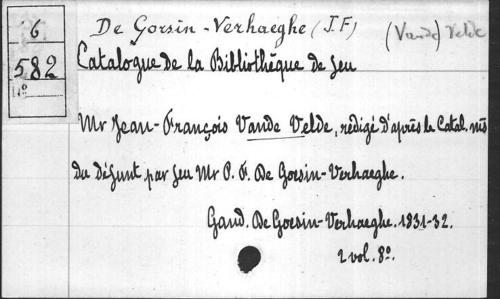 6
582
N°
De Goesin-Verhaeghe (J.F) (Vande) Velde
Catalogue de la Bibliothèque de feu
Mr Jean-François Vande Velde, rédigé d'après le Catal. ms
du défunt par feu Mr P. F. De Goesin-Verhaeghe.
Gand. De Goesin-Verhaeghe. 1831-32.
2 vol. 8°.